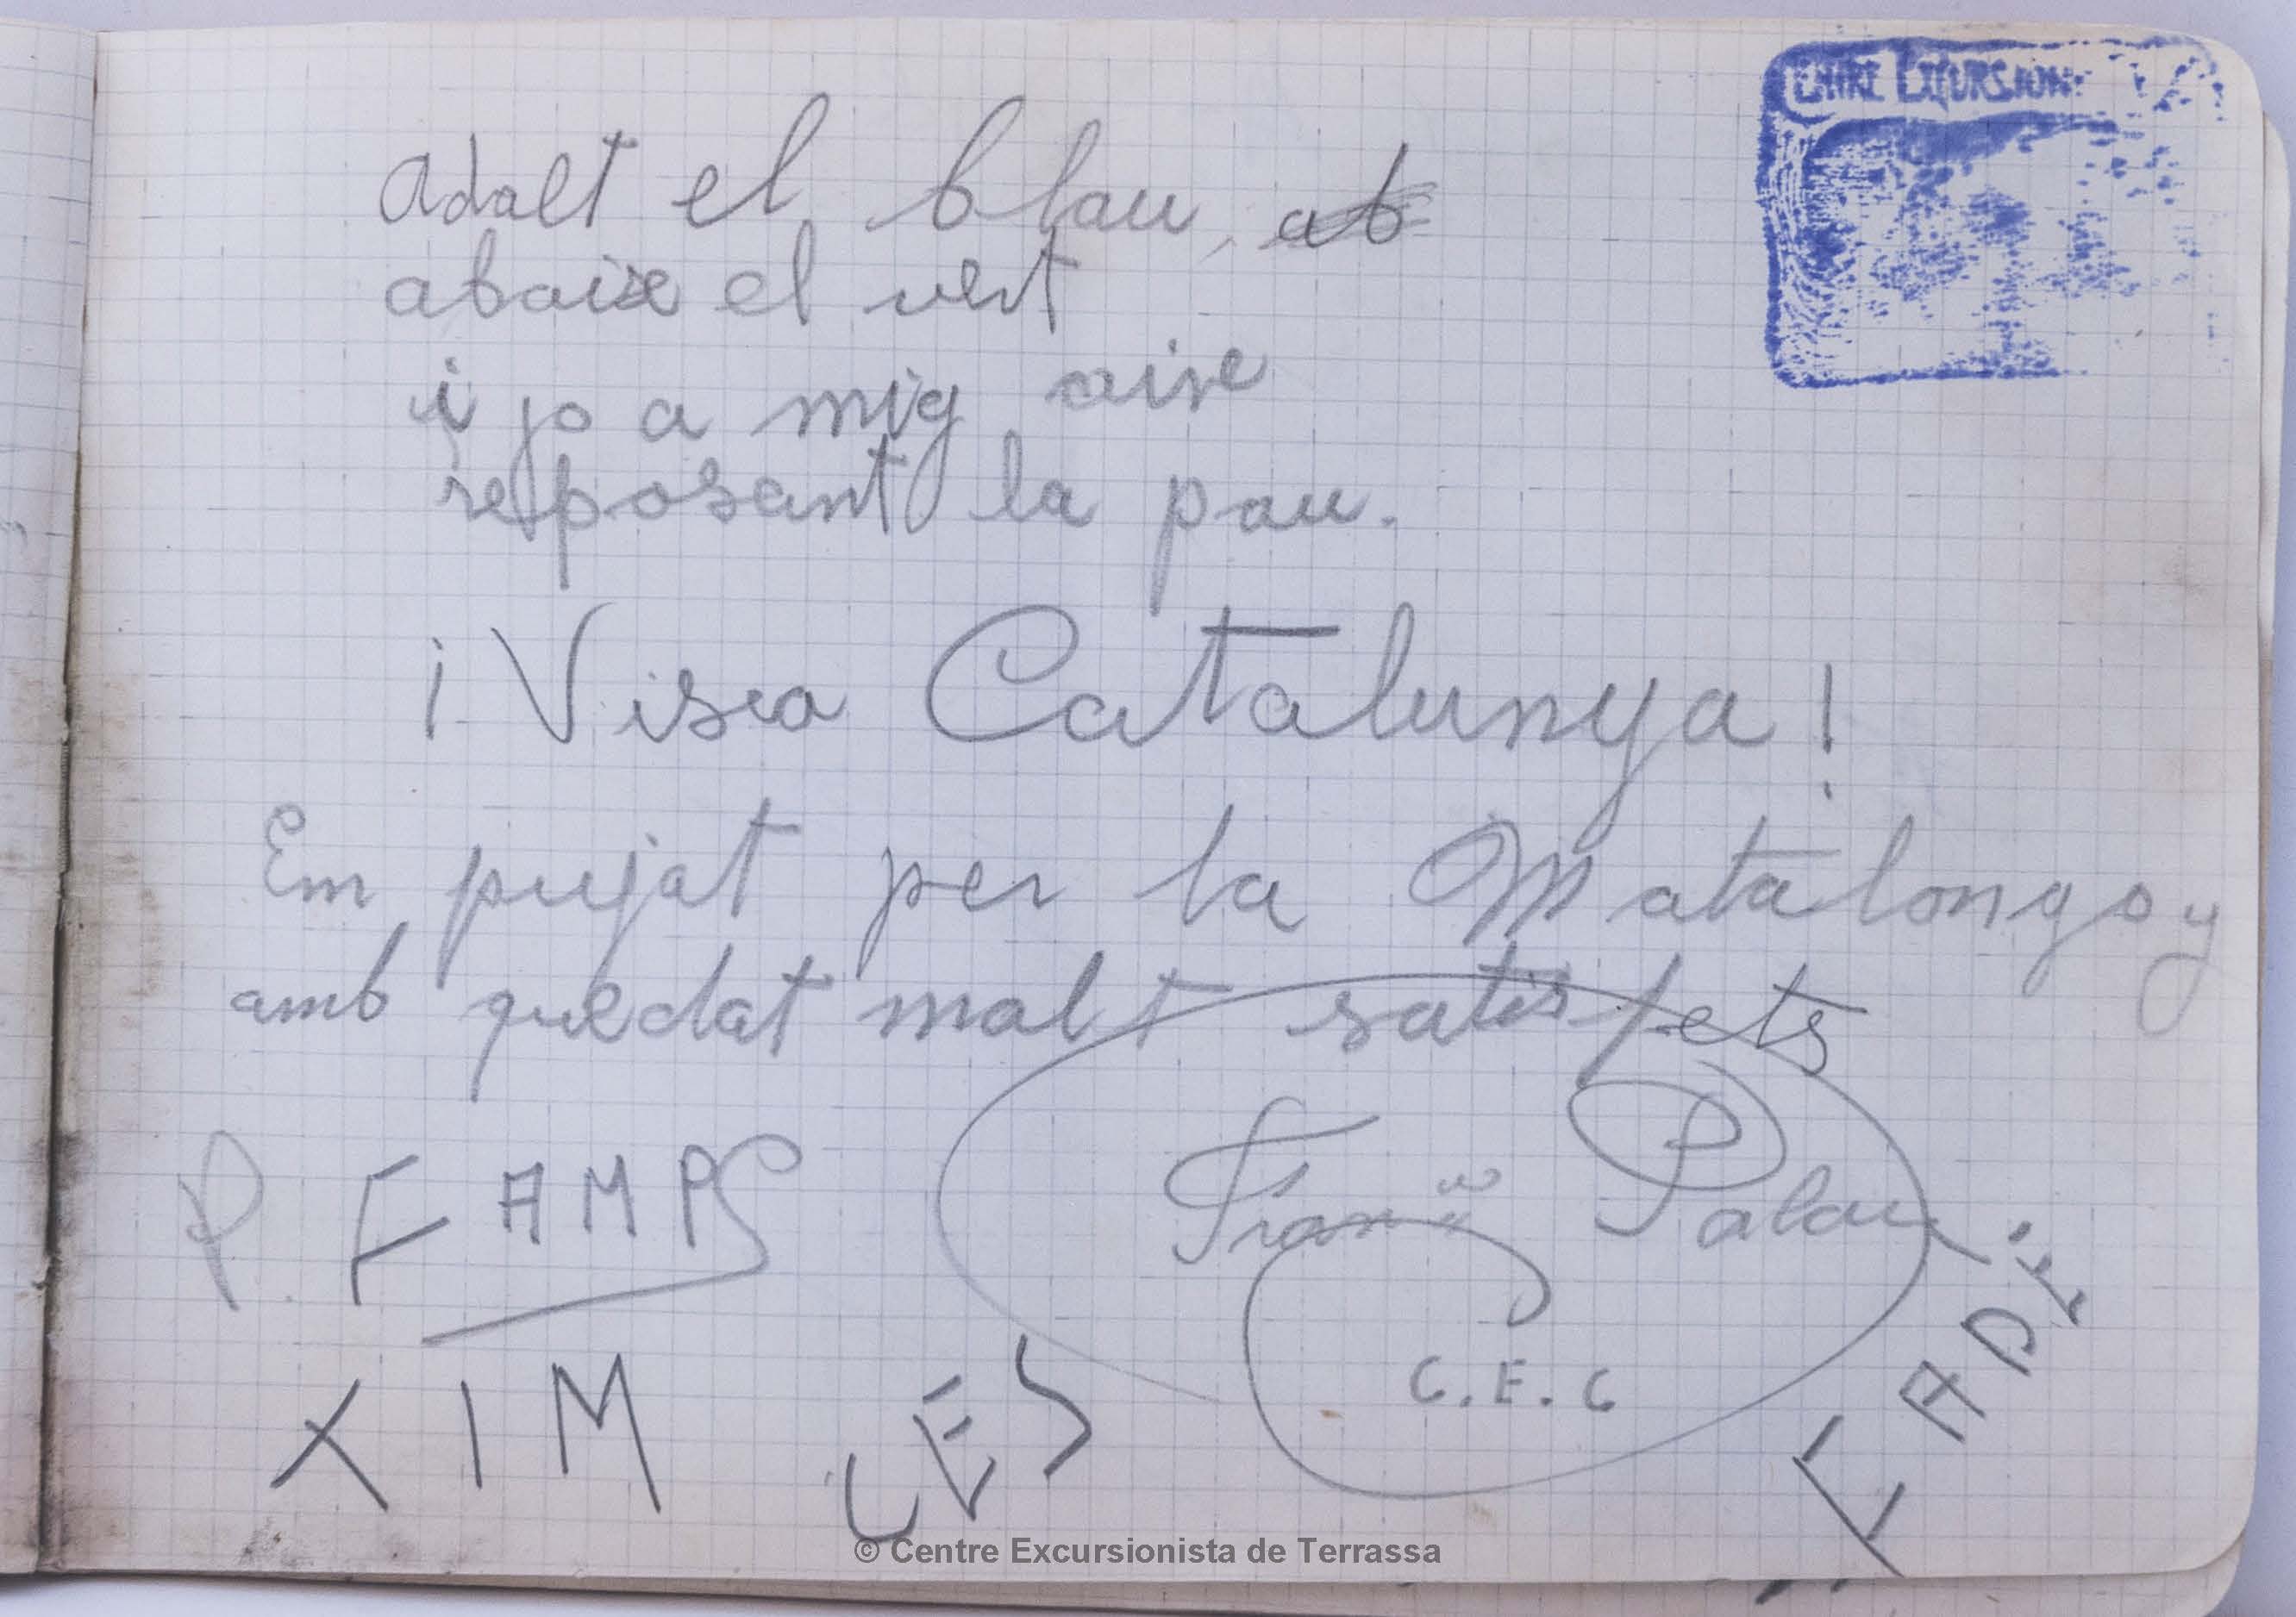 CENTRE EXCURSION
Adalt el blau, ab
abaix el vert
i jo a mig aire
reposant la pau.
¡Visca Catalunya!
Em pujat per la Matalonga y
amb quedat molt satisfets
P. FAMPS
Palau
XIM
C.E.C
© Centre Excursionista de Terrassa